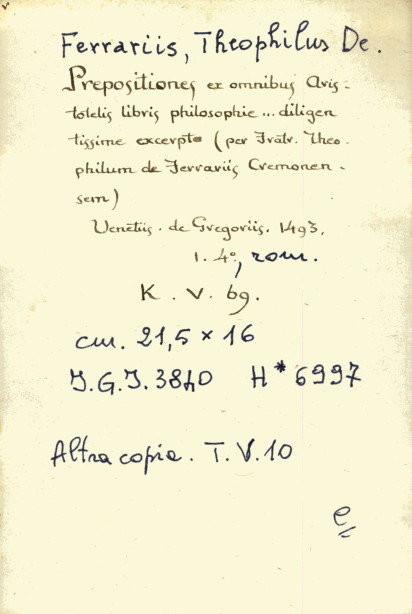 Ferrariis, Theophilus De.
Prepositiones ex omnibus Aris-
totelis libris philosophie ... diligen
tissime excerpte (per Fratr. Theo-
philum de Ferrariis Cremonen-
sem)
Venetiis. de Gregoriis. 1493.
1. 4°, rom.
K. V. 69.
cm. 21,5 × 16
I.G.I. 3840 H* 6997
Altra copia. T. V. 10
e